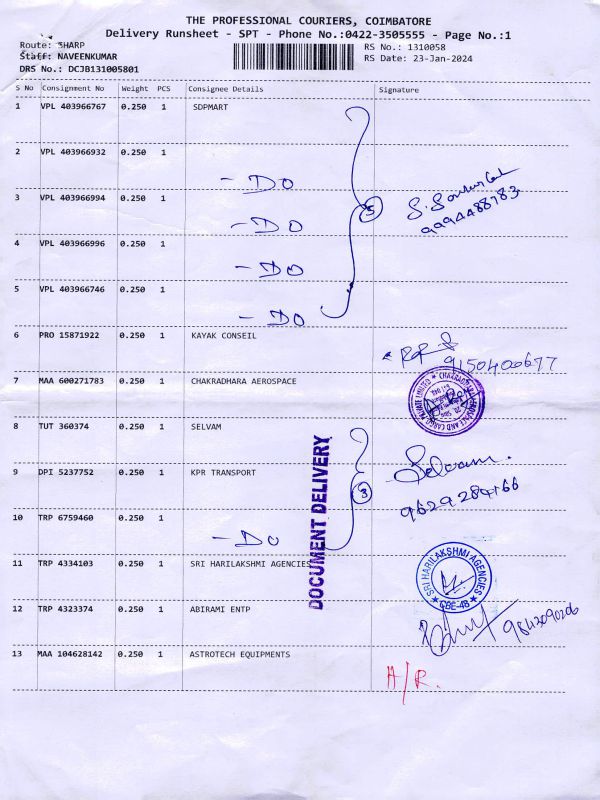 THE PROFESSIONAL COURIERS, COIMBATORE
Delivery Runsheet - SPT - Phone No.:0422-3505555 - Page No.:1
Route: SHARP RS No.: 1310058
Staff: NAVEENKUMAR RS Date: 23-Jan-2024
DRS No.: DCJB131005801
S No Consignment No Weight PCS Consignee Details Signature
1 VPL 403966767 0.250 1 SDPMART
2 VPL 403966932 0.250 1
- DO
3 VPL 403966994 0.250 1
5
9994488783
- DO
4 VPL 403966996 0.250 1
- DO
5 VPL 403966746 0.250 1
- DO
6 PRO 15871922 0.250 1 KAYAK CONSEIL
9150400677
7 MAA 600271783 0.250 1 CHAKRADHARA AEROSPACE
CHAKRADHARA AEROSPACE AND CARGO PRIVATE LIMITED
8 TUT 360374 0.250 1 SELVAM
Selvam.
9 DPI 5237752 0.250 1 KPR TRANSPORT
3
9629284166
10 TRP 6759460 0.250 1
- DO
DOCUMENT DELIVERY
11 TRP 4334103 0.250 1 SRI HARILAKSHMI AGENCIES
SRI HARILAKSHMI AGENCIES
CBE-48
12 TRP 4323374 0.250 1 ABIRAMI ENTP
9843090206
13 MAA 104628142 0.250 1 ASTROTECH EQUIPMENTS
A/R.